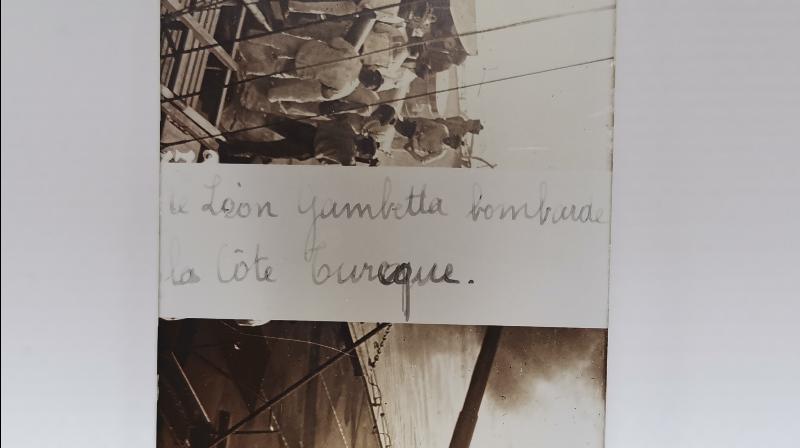 le Léon Gambetta bombarde
la Côte turcque.